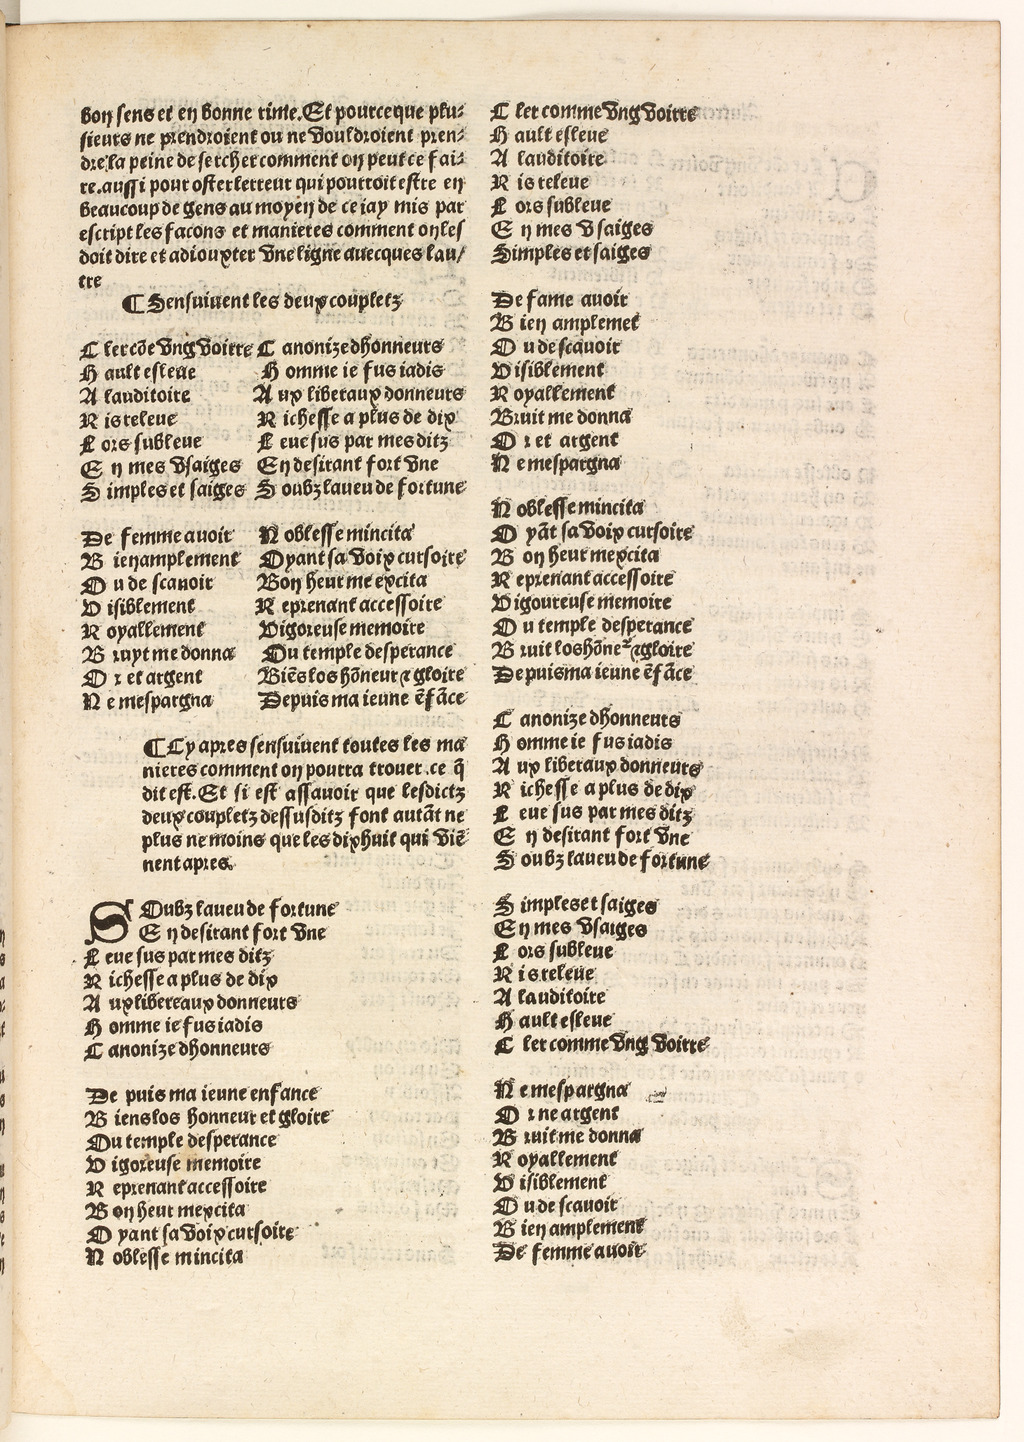 bon sens et en bonne rime. Et pource que plu-
sieurs ne prendroient ou ne vouldroient pren-
dre la peine de sercher comment on peut ce fai-
re. aussi pour oster lerreur qui pourroit estre en
beaucoup de gens au moyen de ce iay mis par
escript les facons et manieres comment on les
doit dire et adiouxter vne ligne auecques lau/
tre
¶ Sensuiuent les deux coupletz
Cler cõe vng voirre
Hault esleue
A lauditoire
Ris releue
Lors subleue
En mes vsaiges
Simples et saiges
Canonize dhonneurs
Homme ie fus iadis
Aux liberaux donneurs
Richesse a plus de dix
Leue sus par mes ditz
En desirant fort vne
Soubz laueu de fortune
De femme auoir
Bien amplement
Ou de scauoir
Visiblement
Royallement
Bruyt me donna
Or et argent
Ne mespargna
Noblesse mincita
Oyant sa voix cursoire
Bon heur me excita
Reprenant accessoire
Vigoreuse memoire
Du temple desperance
Biẽs los hõneur ⁊ gloire
Depuis ma ieune ẽfãce
¶ Cy apres sensuiuent toutes les ma
nieres comment on pourra trouer. ce q̃
dit est. Et si est assauoir que lesdictz
deux coupletz dessusditz font autãt ne
plus ne moins que les dixhuit qui viẽ
nent apres.
SOubz laueu de fortune
En desirant fort vne
Leue sus par mes ditz
Richesse a plus de dix
Aux libereaux donneurs
Homme ie fus iadis
Canonize dhonneurs
De puis ma ieune enfance
Biens los honneur et gloire
Du temple desperance
Vigoreuse memoire
Reprenant accessoire
Bon heur mexcita
Oyant sa voix cursoire
Noblesse mincita
Cler comme vng voirre
Hault esleue
A lauditoire
Ris releue
Lors subleue
En mes vsaiges
Simples et saiges
De fame auoir
Bien amplemet
Ou de scauoir
Visiblement
Royallement
Bruit me donna
Or et argent
Ne mespargna
Noblesse mincita
Oyãt sa voix cursoire
Bon heur mexcita
Reprenant accessoire
Vigoureuse memoire
Du temple desperance
Bruit los hõne ⁊ gloire
Depuis ma ieune ẽfãce
Canonize dhonneurs
Homme ie fus iadis
Aux liberaux donneurs
Richesse a plus de dix
Leue sus par mes ditz
En desirant fort vne
Soubz laueu de fortune
Simples et saiges
En mes vsaiges
Lors subleue
Ris releue
A lauditoire
Hault esleue
Cler comme vng voirre
Ne mespargna
Or ne argent
Bruit me donna
Royallement
Visiblement
Ou de scauoir
Bien amplement
De femme auoir